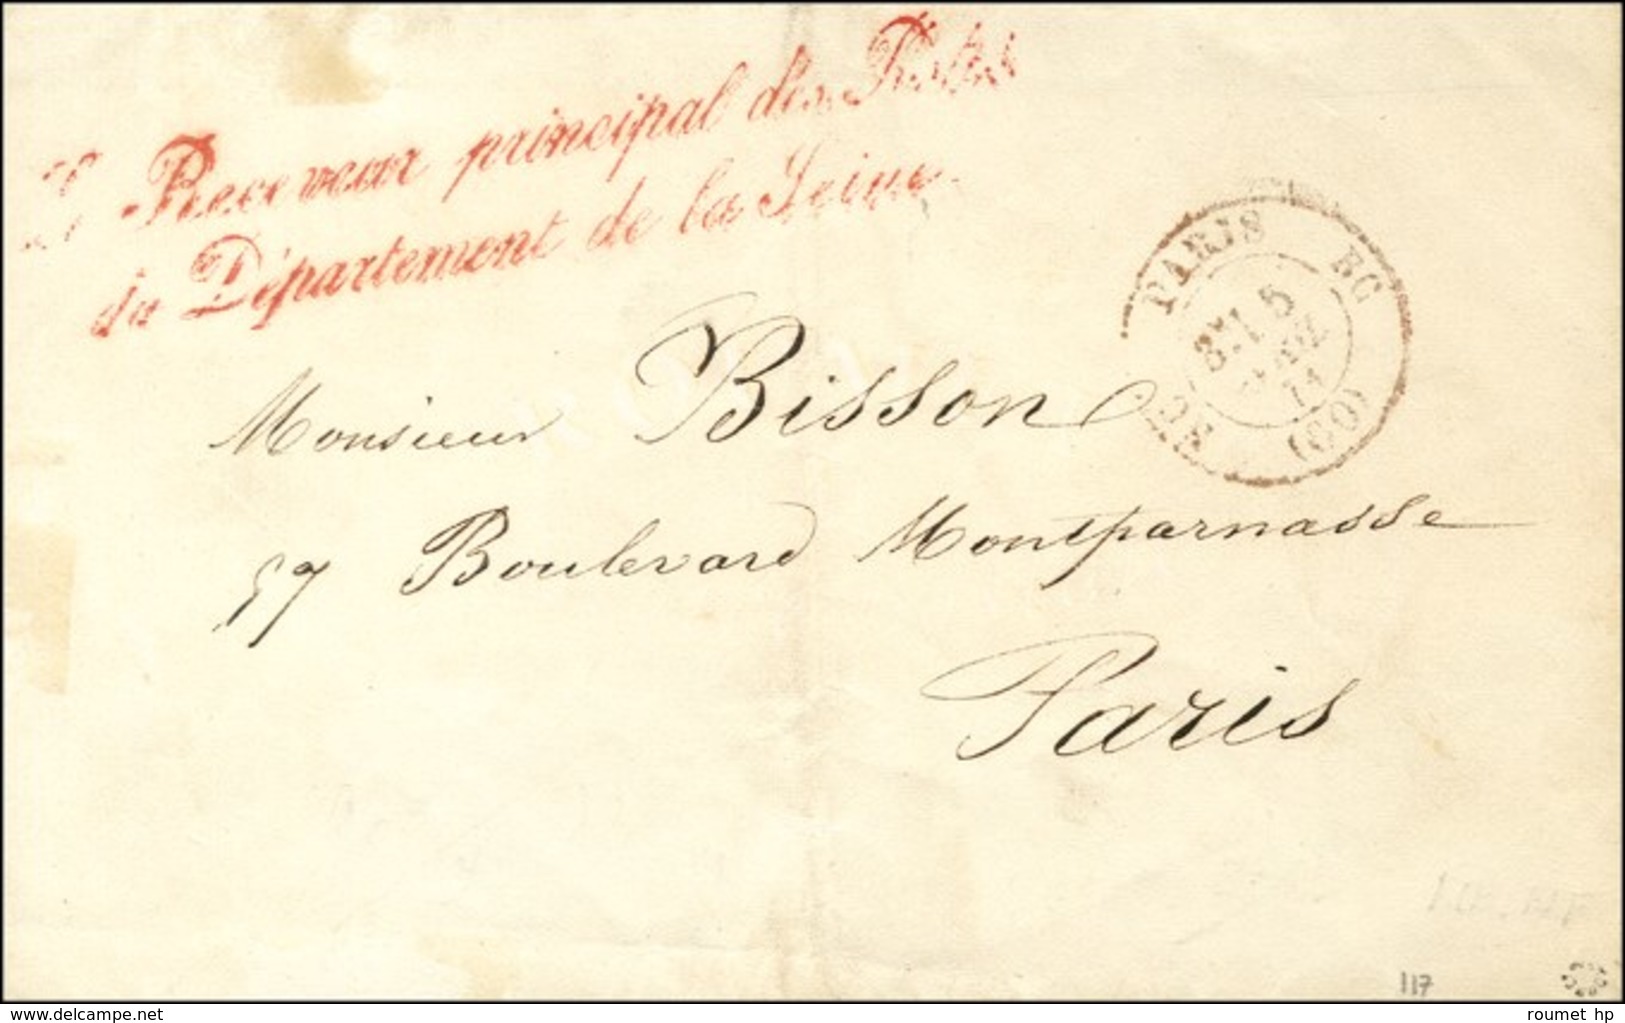 Receveur principal des Postes
du Département de la Seine
PARIS
5
71
(60)
Monsieur Bisson
57 Boulevard Montparnasse
Paris
117
www.delcampe.net
roumet hp